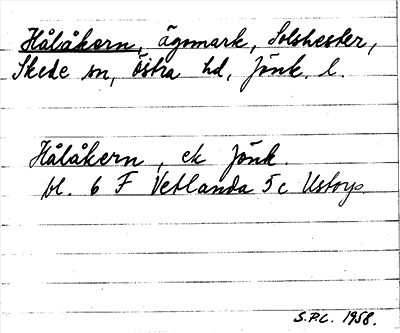 Hålåkern, ägomark, Solshester,
Skede sn, Östra hd, Jönk. l.
Hålåkern, ek Jönk.
bl. 6 F Vetlanda 5 c
S.P.C. 1958.